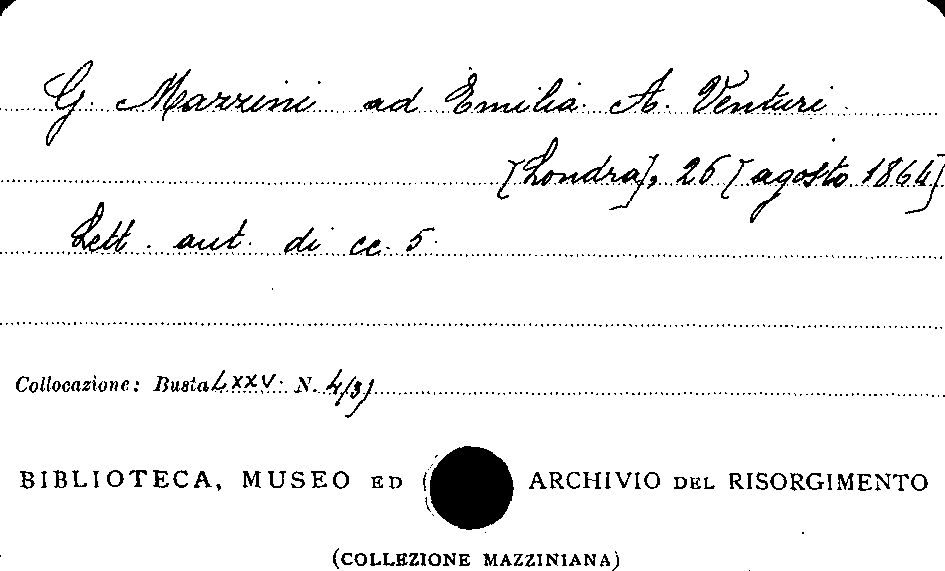 G. Mazzini ad Emilia A. Venturi
[Londra], 26 [agosto 1864]
Lett. aut. di cc. 5
Collocazione: Busta LXXV N. 4/3)
BIBLIOTECA, MUSEO ED ARCHIVIO DEL RISORGIMENTO
(COLLEZIONE MAZZINIANA)